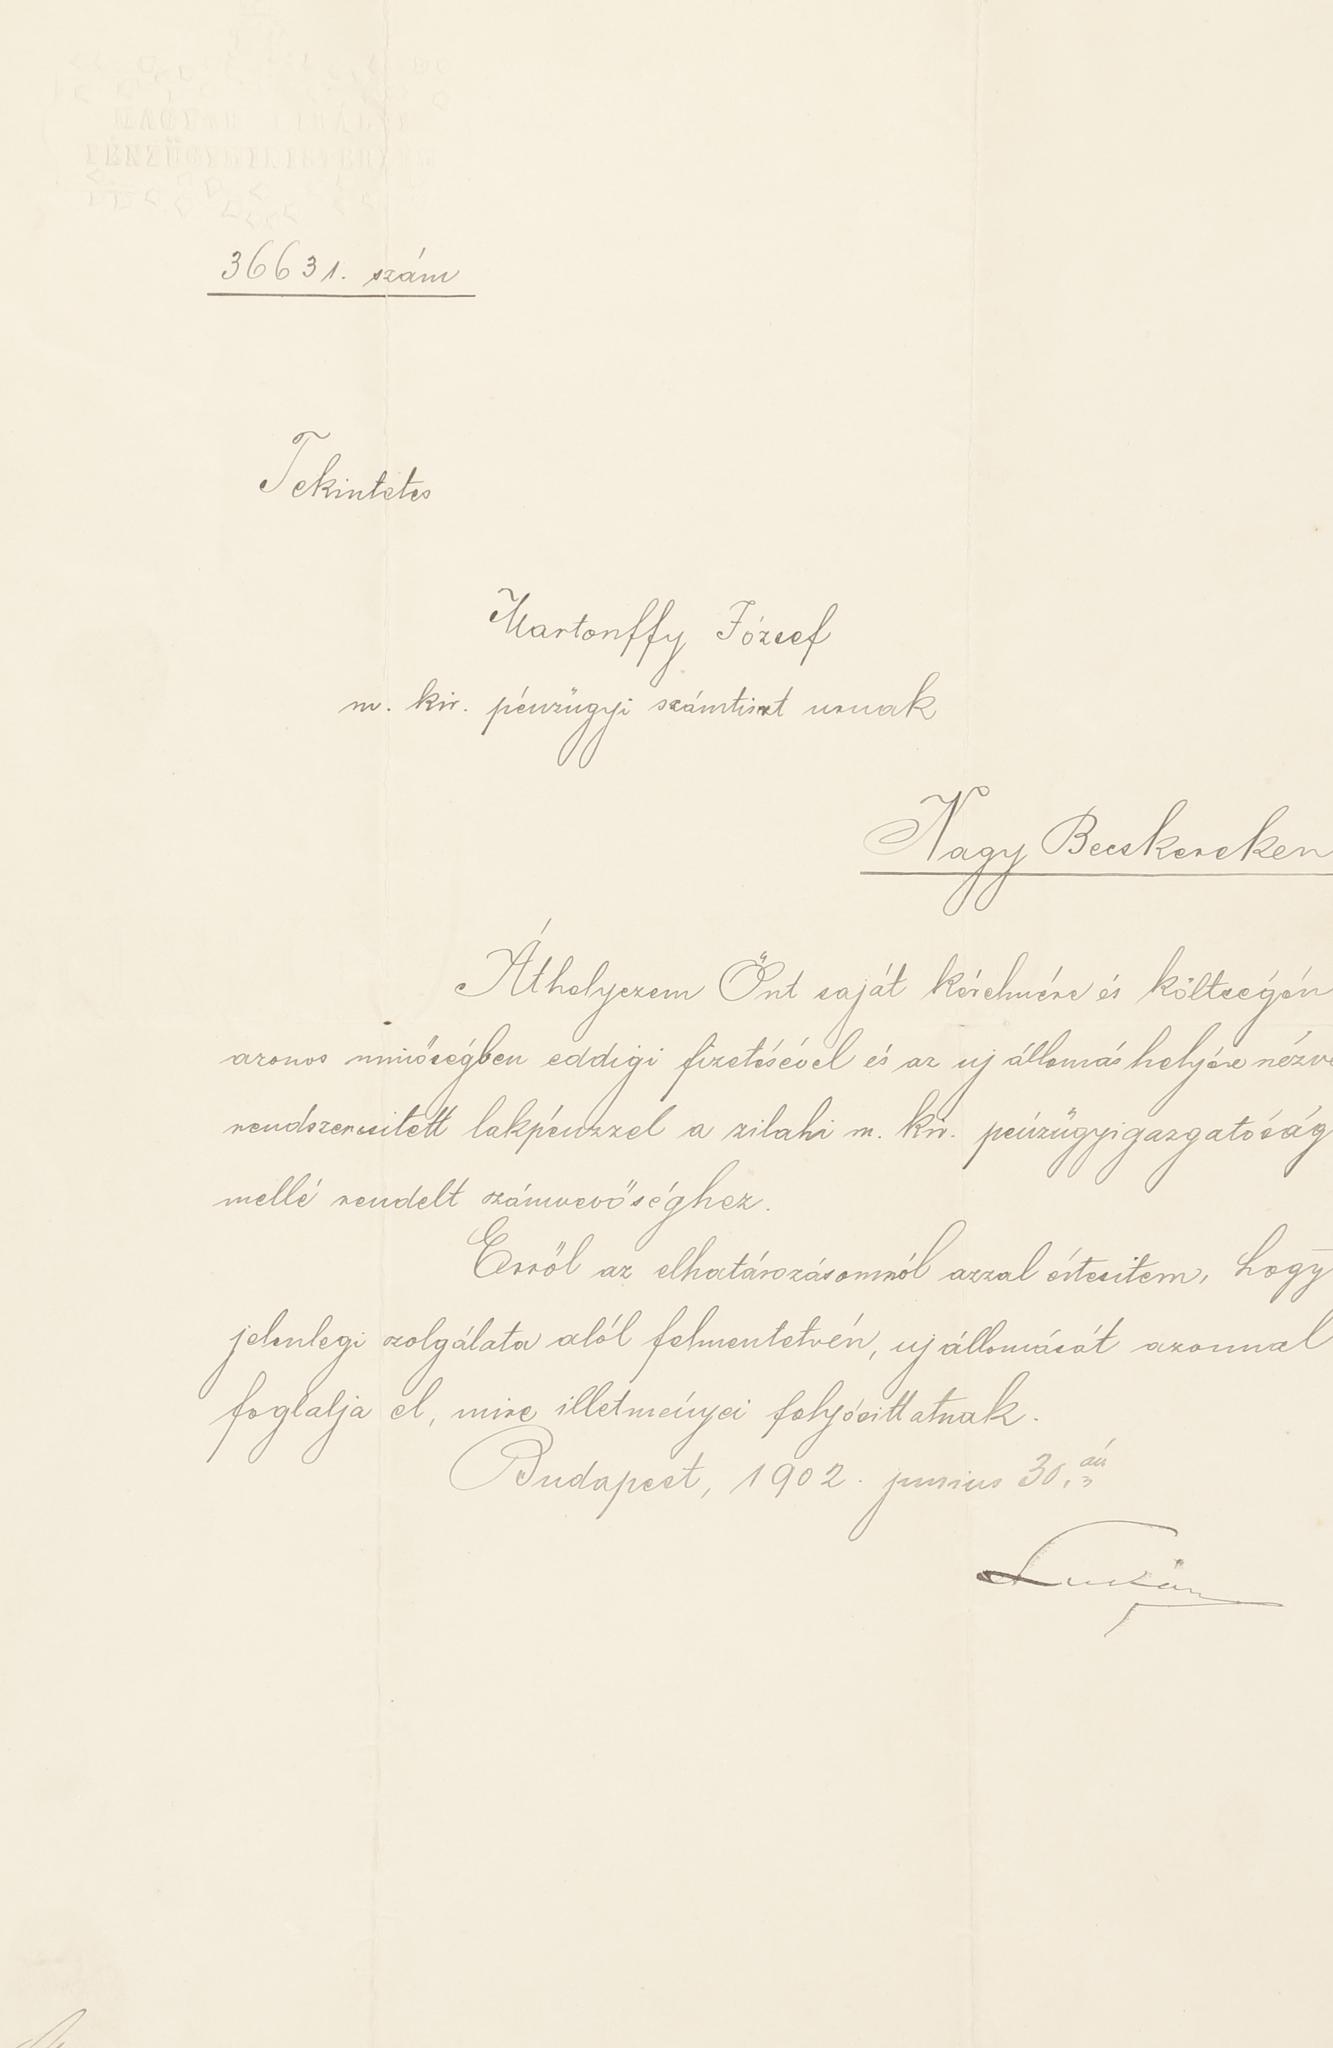 MAGYAR KIRÁLYI
PÉNZÜGYMINISTERIUM
36631. szám
Tekintetes
Martonffy József
m. kir. pénzügyi számtiszt urnak
Nagy Becskereken
Áthelyezem Önt saját kérelmére és költségén
azonos minőségben eddigi fizetésével és az uj állomáshelyére nézve
rendszeresitett lakpénzzel a zilahi m. kir. pénzügyigazgatóság
mellé rendelt számvevőséghez.
Erről az elhatározásomról azzal értesitem, hogy
jelenlegi szolgálata alól felmentetvén, uj állomását azonnal
foglalja el, mire illetményei folyósittatnak.
Budapest, 1902. junius 30.án
Lukács